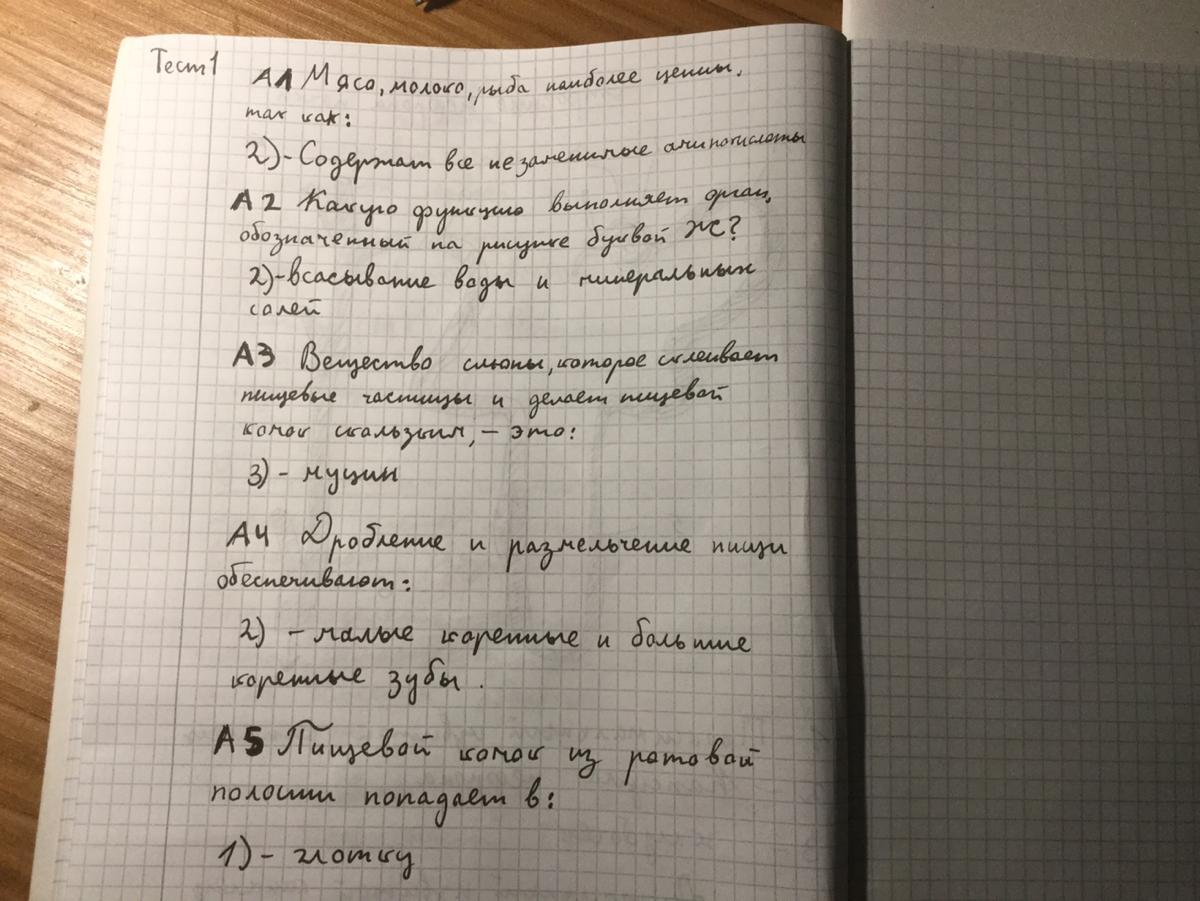 Тест 1
А1 Мясо, молоко, рыба наиболее ценны,
так как:
2)-Содержат все незаменимые аминокислоты
А2 Какую функцию выполняет орган,
обозначенный на рисунке буквой Ж?
2)-всасывание воды и минеральных
солей
А3 Вещество слюны, которое склеивает
пищевые частицы и делает пищевой
комок скользким, – это:
3) - муцин
А4 Дробление и размельчение пищи
обеспечивают:
2) - малые коренные и большие
коренные зубы.
А5 Пищевой комок из ротовой
полости попадает в:
1) - глотку